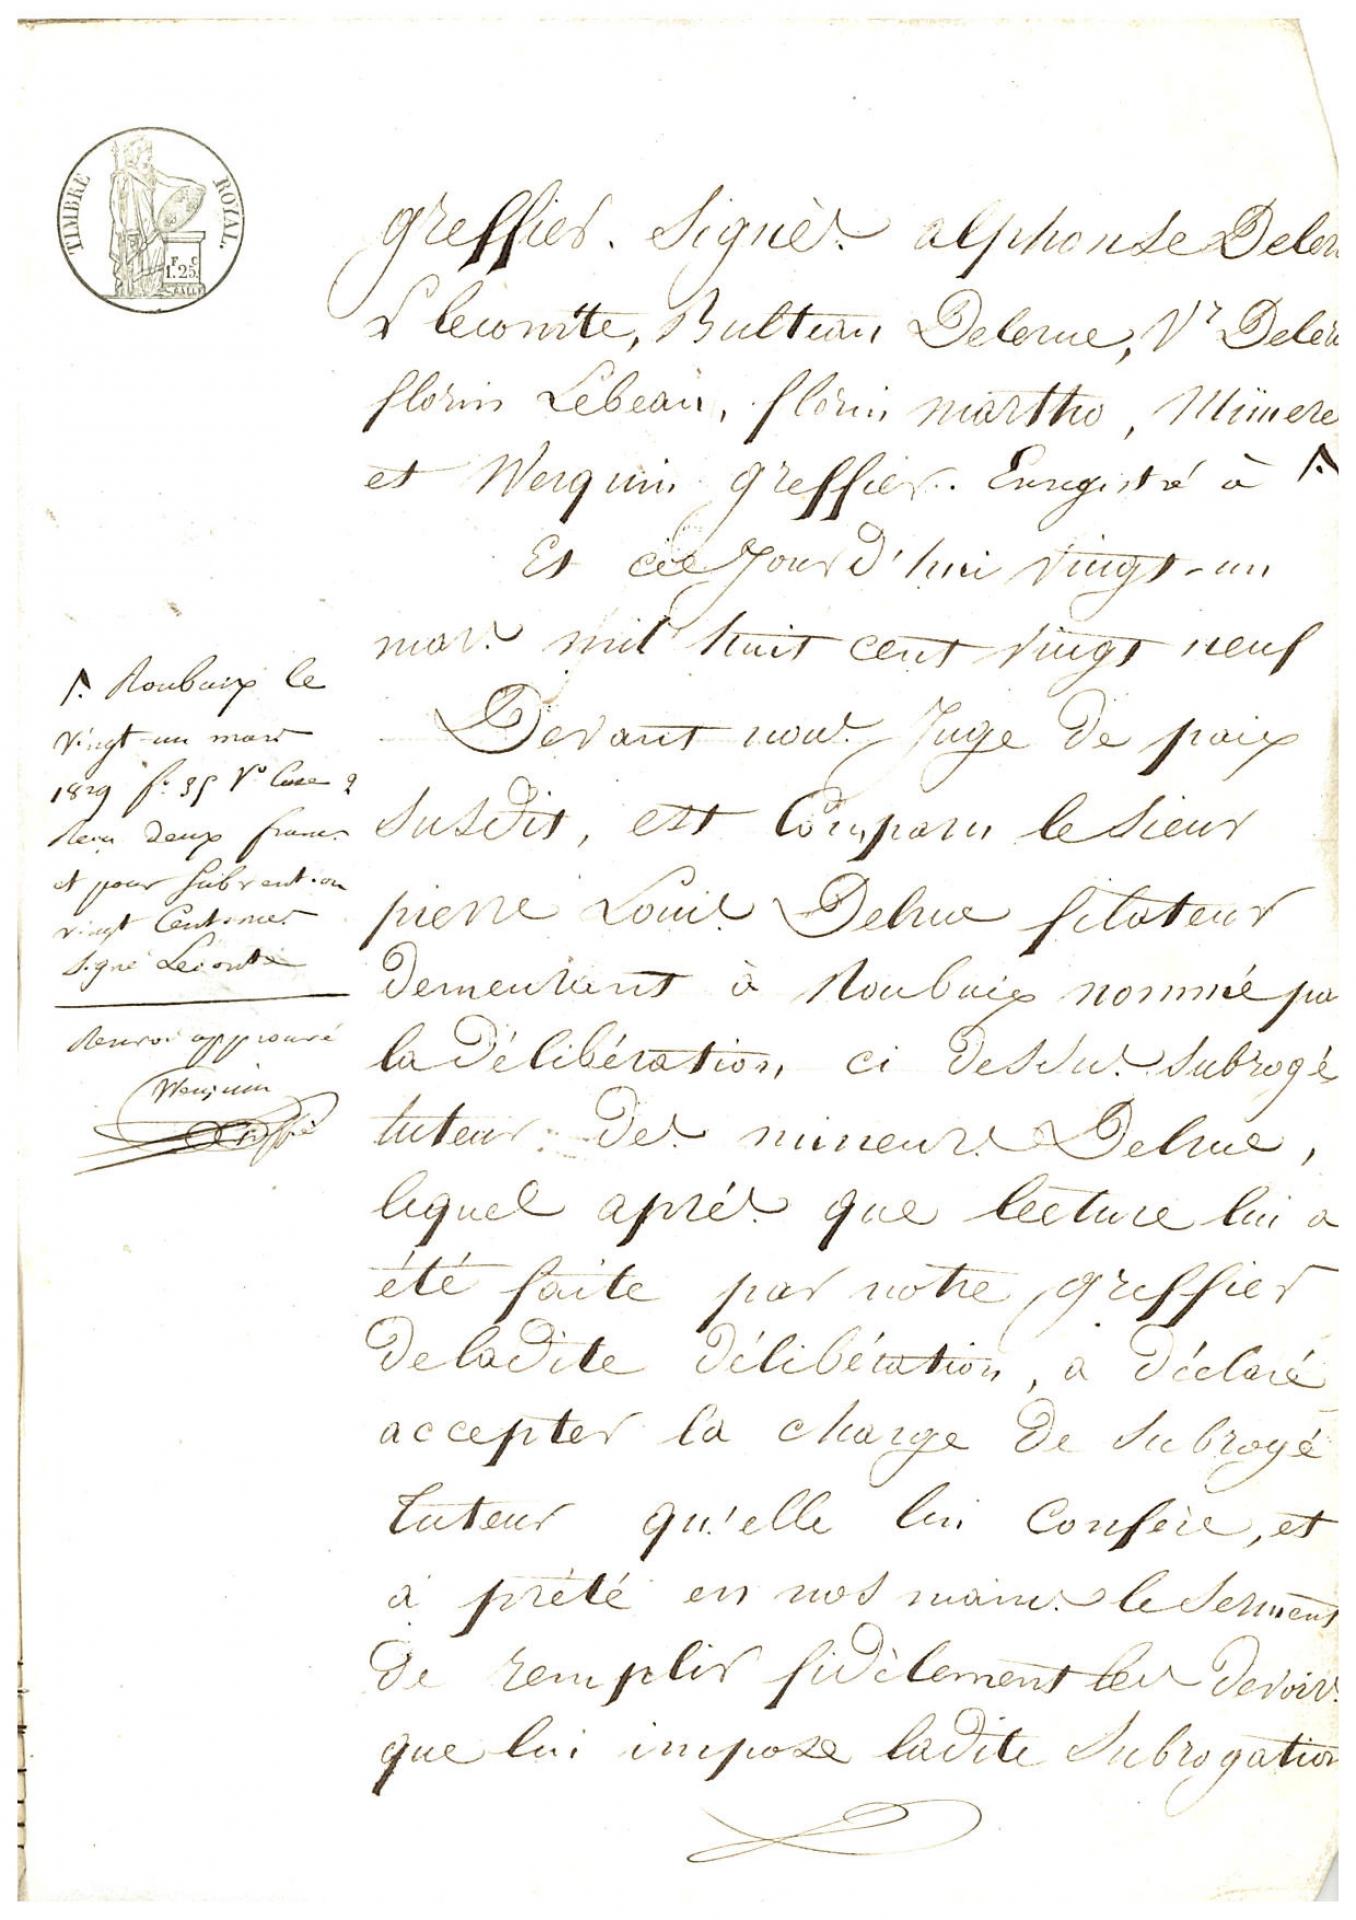 TIMBRE ROYAL.
F. C.
1.25.
greffier. Signés. alphonse Deler
Lecomte, Bulteau Delerue, Vr Deler
florin Lebeau, florin martho, Mimere
et Werquin greffier. Enregistré à
Et cee Jourd'hui vingt-un
mars mil huit cent vingt neuf
Devant nous Juge de paix
susdit, est Comparu le Sieur
pierre Louis Delrue filateur
demeurant à Roubaix nommé pa
la délibération, ci dessus subrogé
tuteur des mineurs Delrue,
lequel après que lecture lui a
été faite par notre greffier
de ladite délibération, a déclaré
accepter la charge de subrogé
tuteur qu'elle lui confère, et
a prêté en nos mains le serment
de remplir fidèlement les devoirs
que lui impose ladite subrogation
Roubaix le
vingt-un mars
1829 fo 35 Vo Case 2
Reçu deux francs
et pour subvention
vingt Centimes
Signé Lecomte
Renvoi approuvé
Werquin